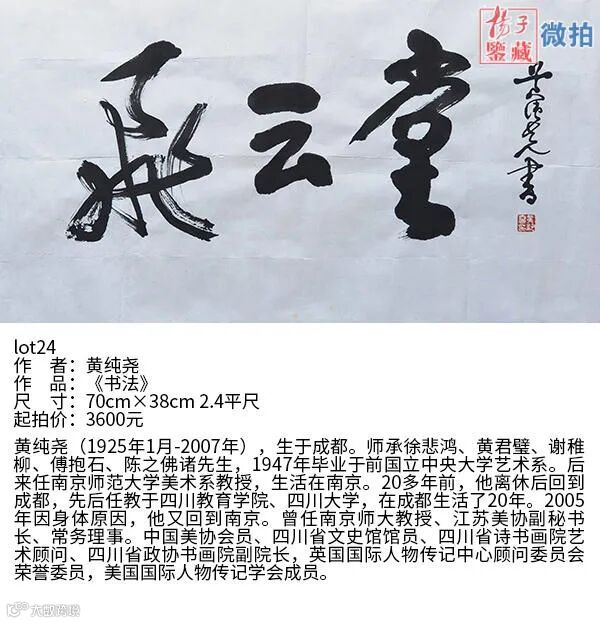 飛云堂
黄纯尧书
杨子
鉴藏
微拍
lot24
作 者：黄纯尧
作 品：《书法》
尺 寸：70cm×38cm 2.4平尺
起拍价：3600元
黄纯尧（1925年1月-2007年），生于成都。师承徐悲鸿、黄君璧、谢稚
柳、傅抱石、陈之佛诸先生，1947年毕业于前国立中央大学艺术系。后
来任南京师范大学美术系教授，生活在南京。20多年前，他离休后回到
成都，先后任教于四川教育学院、四川大学，在成都生活了20年。2005
年因身体原因，他又回到南京。曾任南京师大教授、江苏美协副秘书
长、常务理事。中国美协会员、四川省文史馆馆员、四川省诗书画院艺
术顾问、四川省政协书画院副院长，英国国际人物传记中心顾问委员会
荣誉委员，美国国际人物传记学会成员。